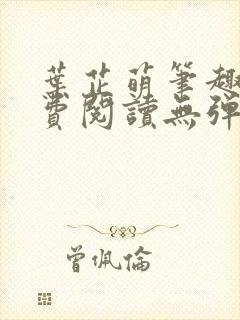 葉芷萌筆趣
費閱讀無彈
曾佩倫